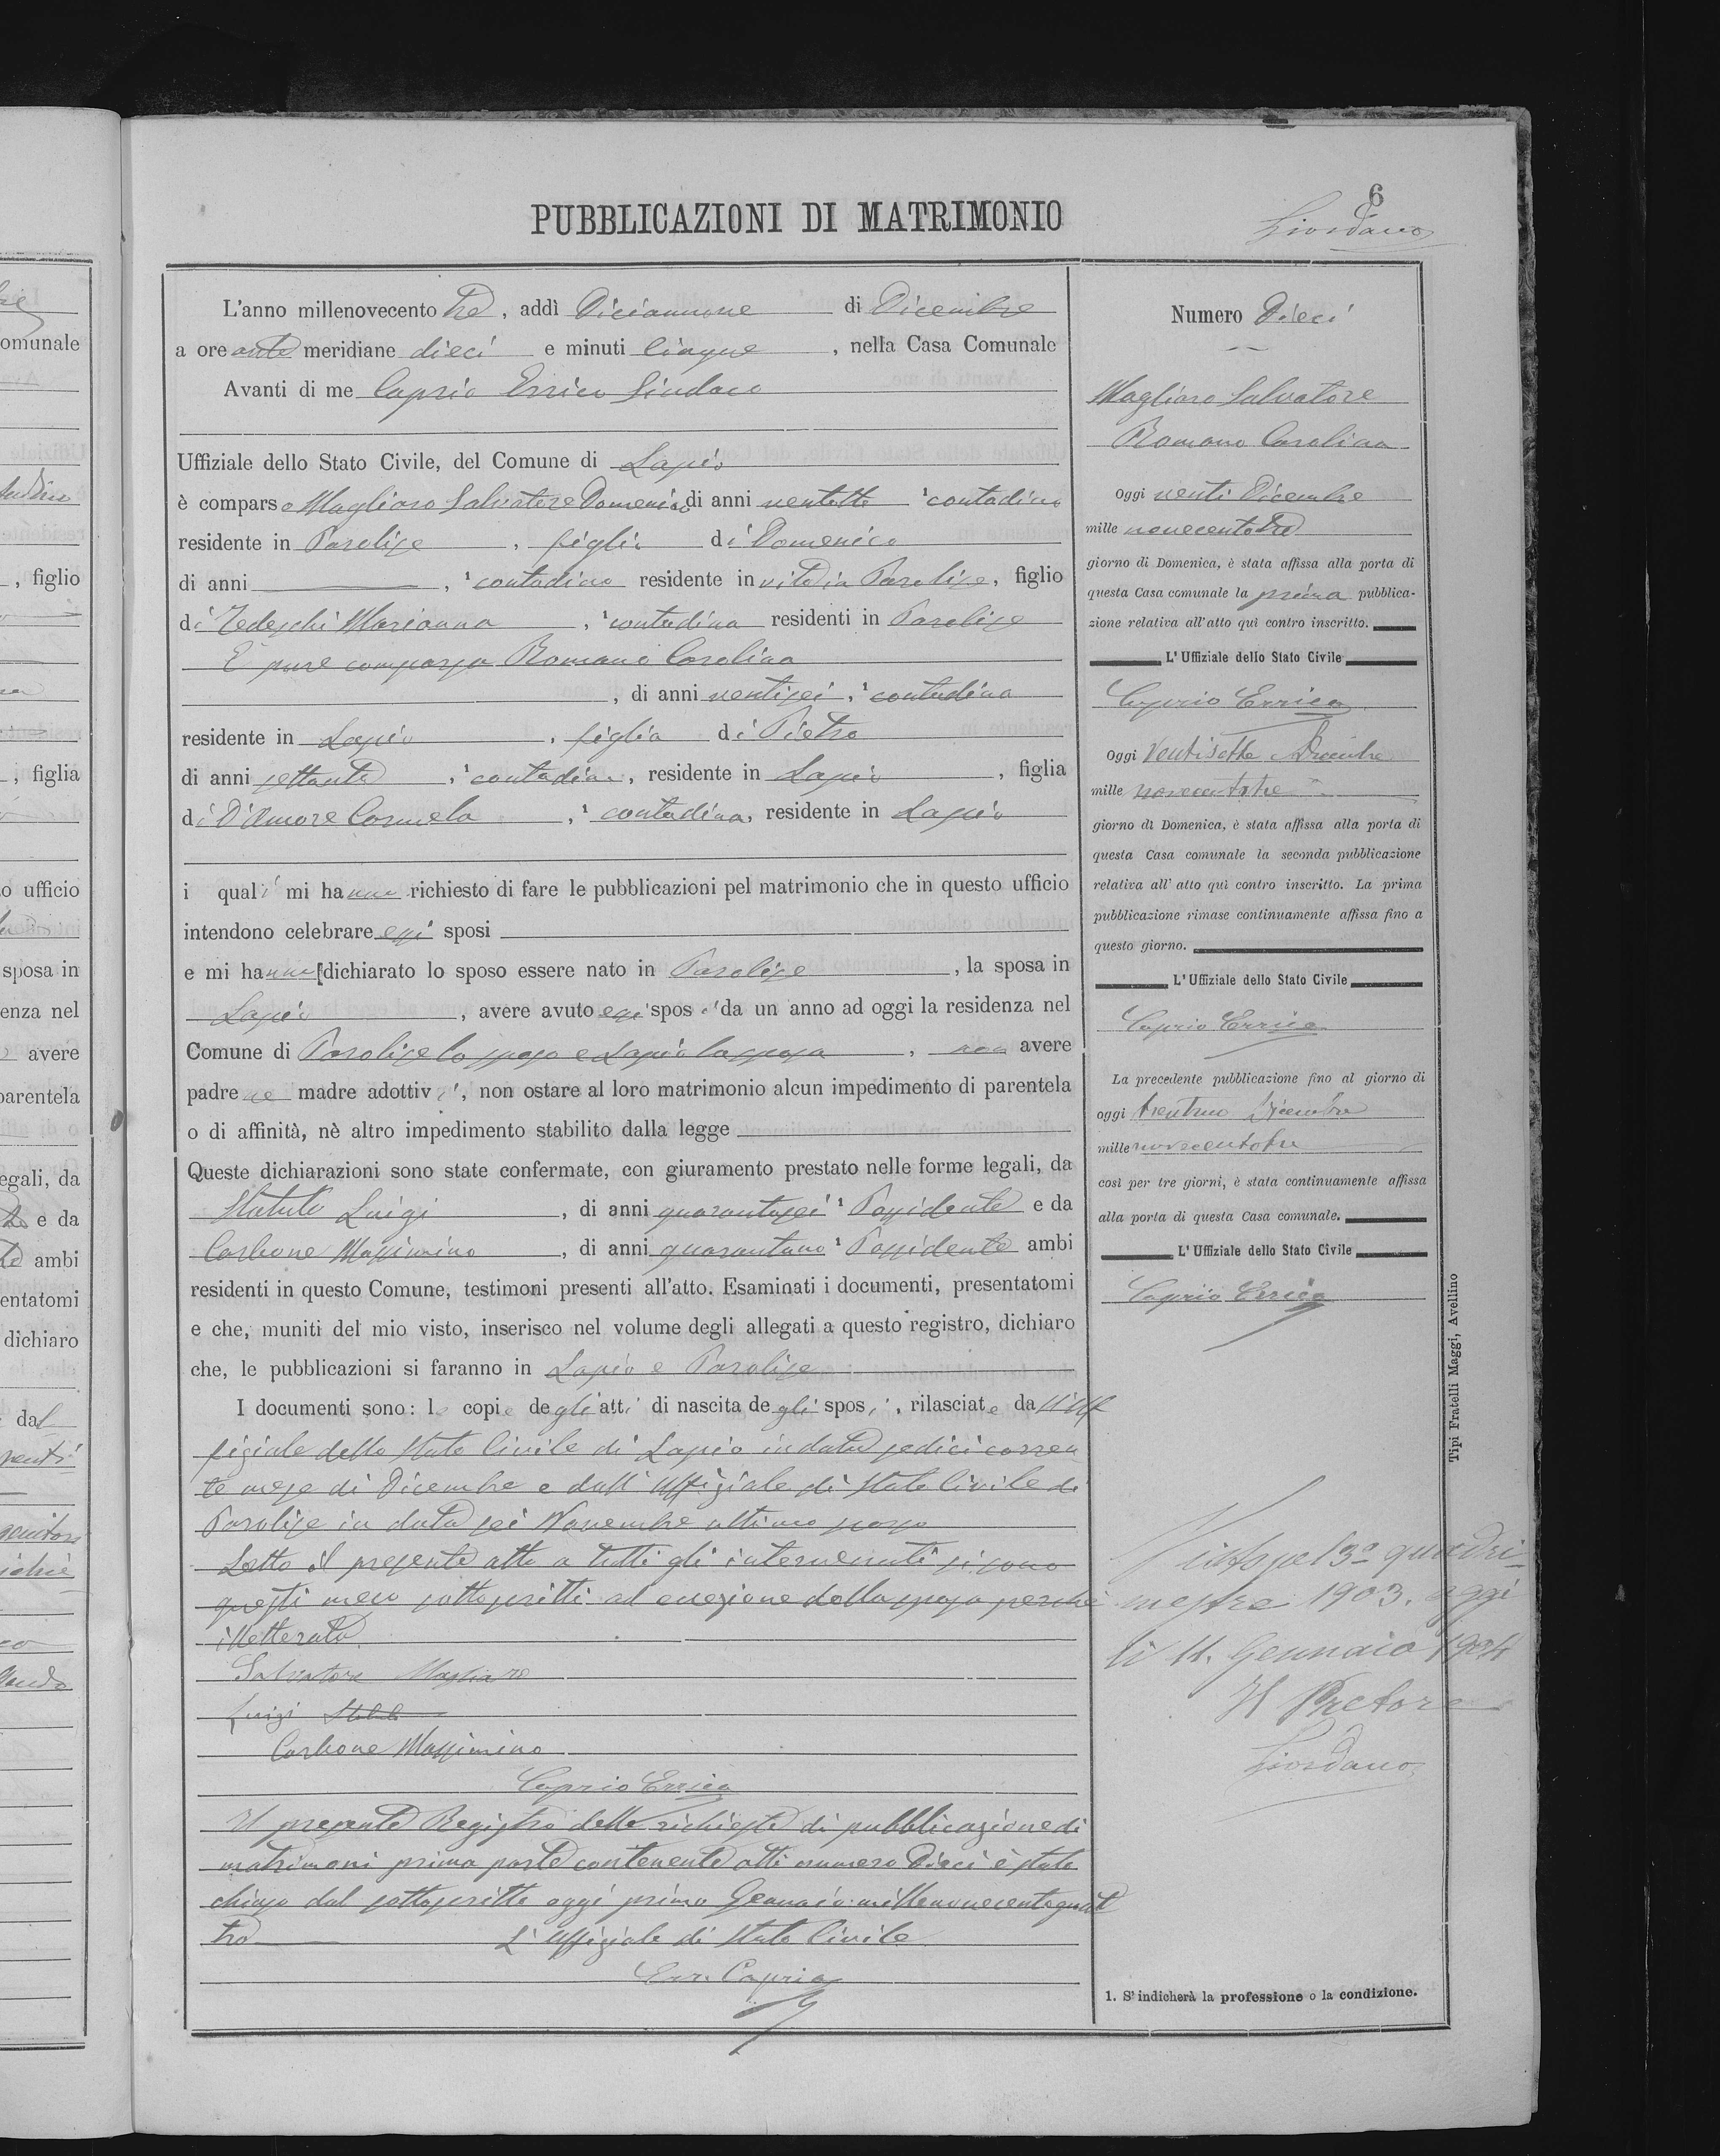 PUBBLICAZIONI DI MATRIMONIO
6
Giordano
L'anno millenovecento tre, addì Diciannove di Dicembre
a ore ante meridiane dieci e minuti Cinque, nella Casa Comunale
Avanti di me Caprio Errico Sindaco
Uffiziale dello Stato Civile, del Comune di Lapio
è comparso Magliaro Salvatore Domenico di anni ventotto ¹ contadino
residente in Parolise, figlio di Domenico
di anni , ¹ contadino residente in vita in Parolise, figlio
di Tedeschi Marianna, ¹ contadina residenti in Parolise
È pure comparsa Romano Carolina
, di anni ventisei, ¹ contadina
residente in Lapio, figlia di Pietro
di anni settanta, ¹ contadino, residente in Lapio, figlia
di D'Amore Carmela, ¹ contadina, residente in Lapio
i quali mi hanno richiesto di fare le pubblicazioni pel matrimonio che in questo ufficio
intendono celebrare essi sposi
e mi hanno dichiarato lo sposo essere nato in Parolise, la sposa in
Lapio, avere avuto essi sposi da un anno ad oggi la residenza nel
Comune di Parolise lo sposo e Lapio la sposa, non avere
padre ne madre adottivi, non ostare al loro matrimonio alcun impedimento di parentela
o di affinità, nè altro impedimento stabilito dalla legge
Queste dichiarazioni sono state confermate, con giuramento prestato nelle forme legali, da
Statuto Luigi, di anni quarantasei ¹ Possidente e da
Carbone Massimino, di anni quarantuno ¹ Possidente ambi
residenti in questo Comune, testimoni presenti all'atto. Esaminati i documenti, presentatomi
e che, muniti del mio visto, inserisco nel volume degli allegati a questo registro, dichiaro
che, le pubblicazioni si faranno in Lapio e Parolise
I documenti sono: le copie degli atti di nascita degli sposi, rilasciate dall'Uf
fiziale dello Stato Civile di Lapio in data sedici corren
te mese di Dicembre e dall'Uffiziale di Stato Civile di
Parolise in data sei Novembre ultimo
Letto il presente atto a tutti gli intervenuti si sono
questi meco sottoscritti ad eccezione della sposa perchè
illetterata.
Salvatore Magliaro
Luigi Statuto
Carbone Massimino
Caprio Errico
Il presente Registro delle richieste di pubblicazione di
matrimoni prima parte contenente atti numero Dieci è stato
chiuso dal sottoscritto oggi primo Gennaio millenovecentoquat
tro
L'Uffiziale di Stato Civile
Err. Caprio
Numero Dieci
Magliaro Salvatore
Romano Carolina
Oggi venti Dicembre
mille novecentotre
giorno di Domenica, è stata affissa alla porta di
questa Casa comunale la prima pubblica-
zione relativa all'atto quì contro inscritto.
L'Uffiziale dello Stato Civile
Caprio Errico
Oggi Ventisette Dicembre
mille novecentotre
giorno di Domenica, è stata affissa alla porta di
questa Casa comunale la seconda pubblicazione
relativa all'atto quì contro inscritto. La prima
pubblicazione rimase continuamente affissa fino a
questo giorno.
L'Uffiziale dello Stato Civile
Caprio Errico
La precedente pubblicazione fino al giorno di
oggi trentuno Dicembre
mille novecentotre
così per tre giorni, è stata continuamente affissa
alla porta di questa Casa comunale.
L'Uffiziale dello Stato Civile
Caprio Errico
Visto pel 3º quadri-
mestre 1903. oggi
li 11. Gennaio 1904
Il Pretore
Giordano
1. S'indicherà la professione o la condizione.
Tipi Fratelli Maggi, Avellino
omunale
, figlio
, figlia
o ufficio
sposa in
enza nel
avere
parentela
egali, da
e da
ambi
entatomi
dichiaro
dal
venti